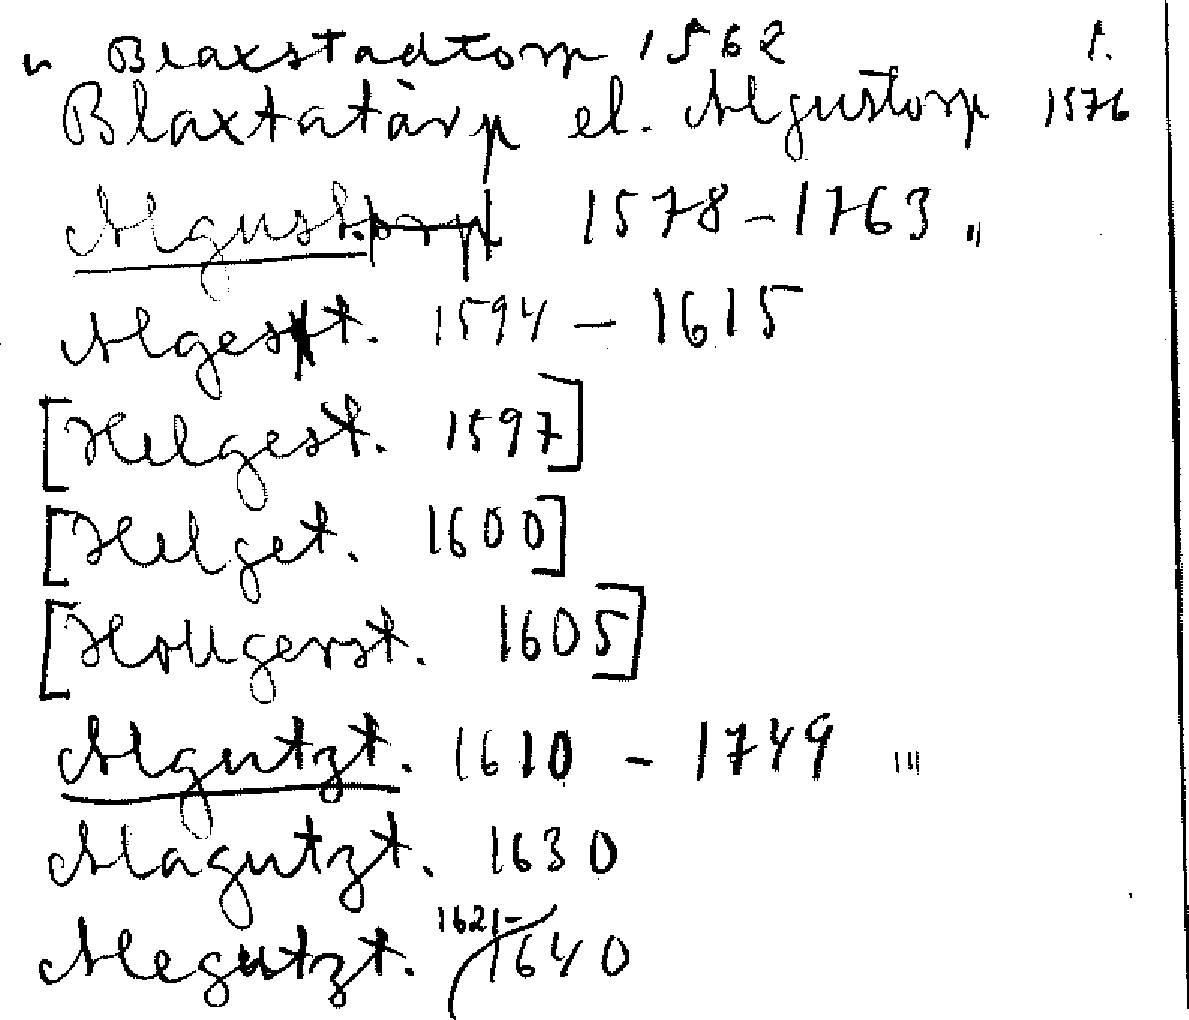 " Blaxstadtorp 1562 1.
Blaxtatårp el. Algustorp 1576
Algust. 1578-1763 "
Algest. 1594-1615
[Helgest. 1597]
[Helget. 1600]
[Hollgerst. 1605]
Algutzt. 1610 - 1749 "'
Alagutzt. 1630
Alegutzt. 1621-1640